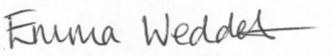 Emma Weddet